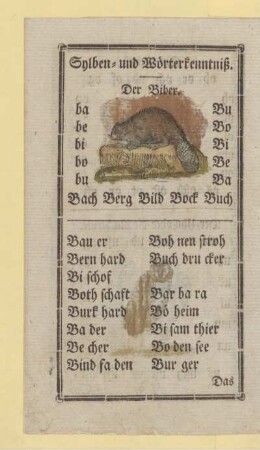 Sylben- und Wörterkenntniß.
Der Biber.
ba Bu
be Bo
bi Bi
bo Be
bu Ba
Bach Berg Bild Bock Buch
Bau er Boh nen stroh
Bern hard Buch dru cker
Bi schof
Both schaft Bar ba ra
Burk hard Bö heim
Ba der Bi sam thier
Be cher Bo den see
Bind fa den Bur ger
Das